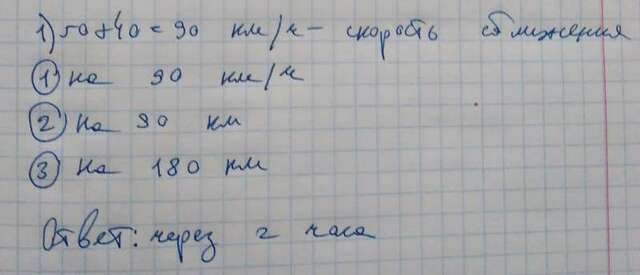 1) 50+40=90 км/ч - скорость сближения
1 на 90 км/ч
2 на 90 км
3 на 180 км
Ответ: через 2 часа